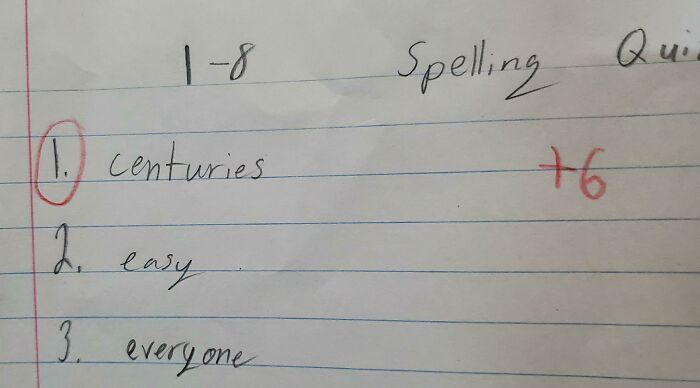 1-8 Spelling Qui
1. centuries +6
2. easy
3. everyone